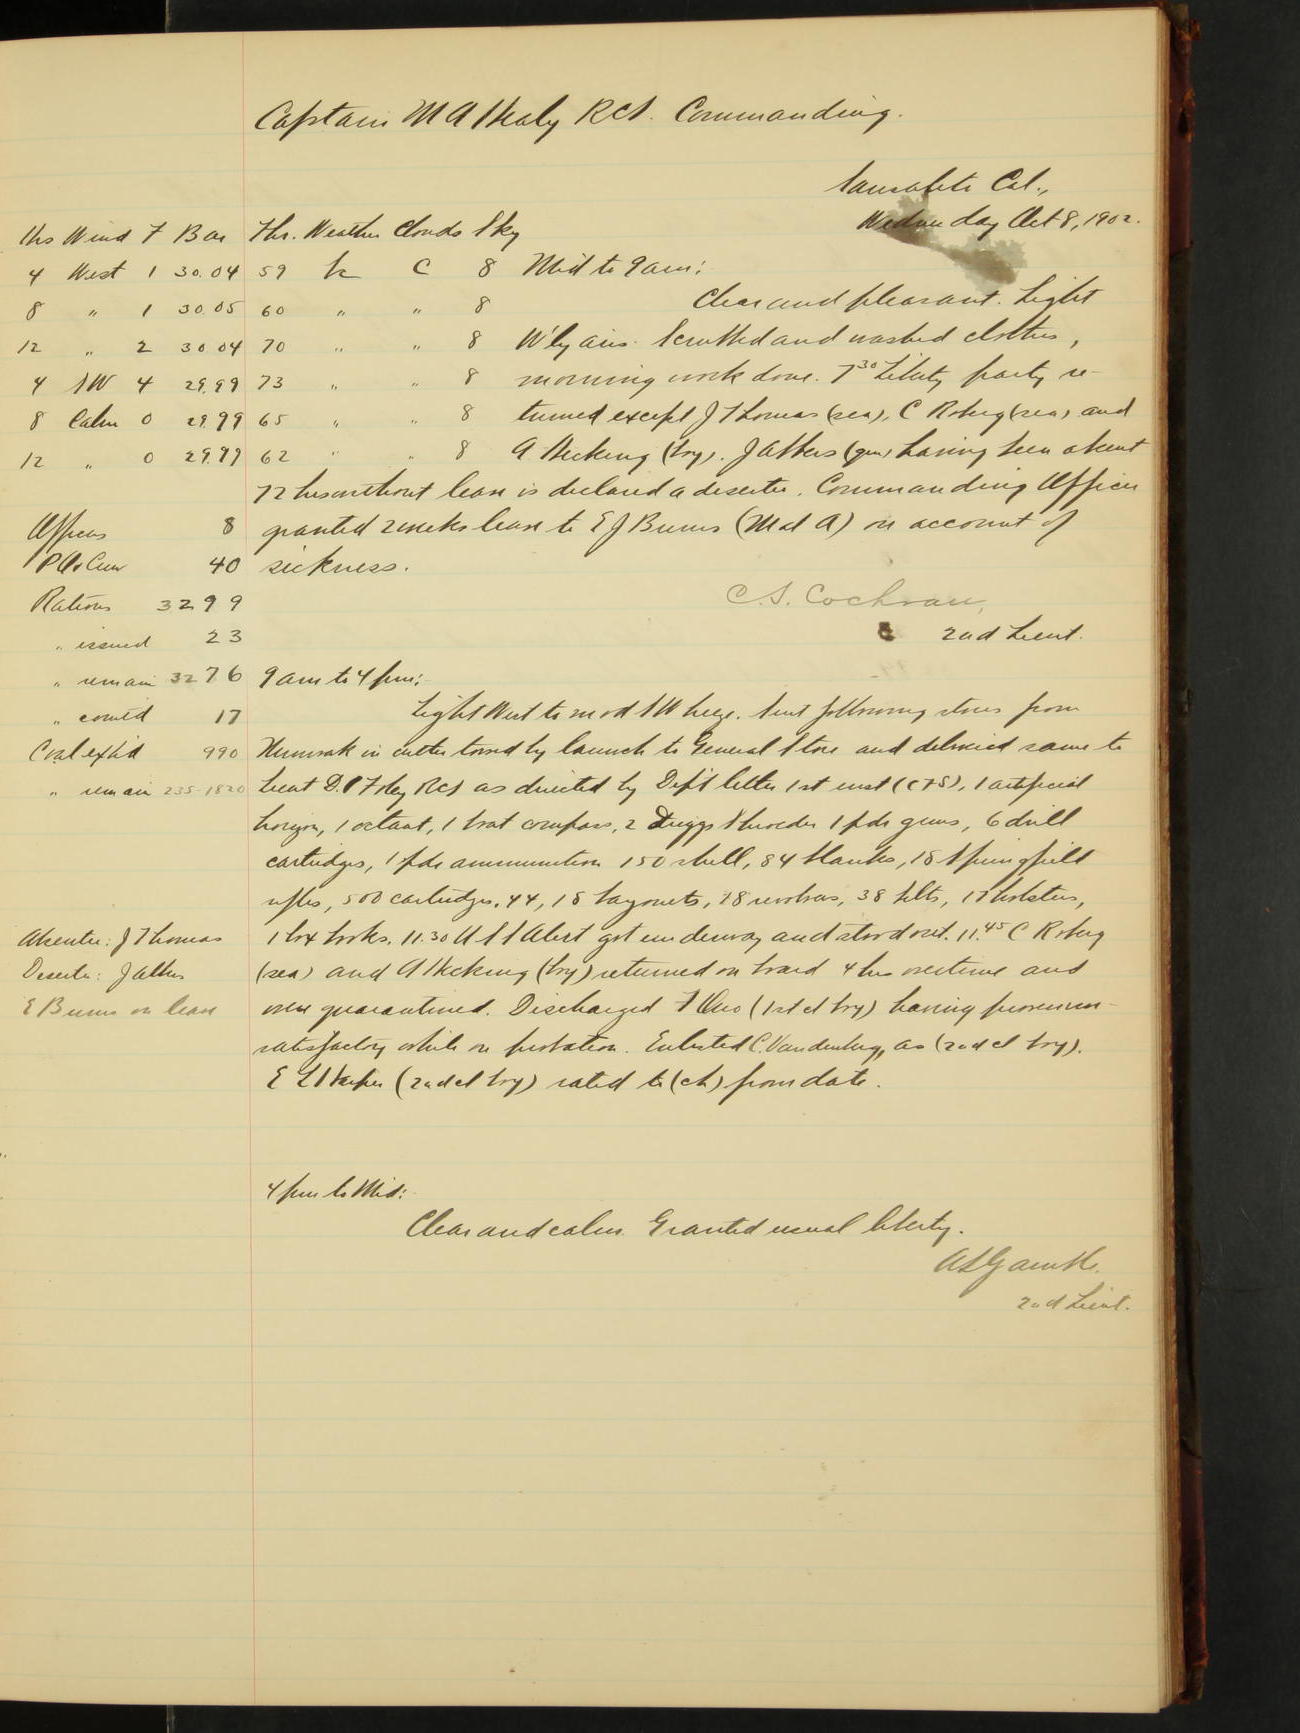 Captain M A Healy RCS. Commanding.
Sausalito Cal.,
Wednesday Oct 8, 1902.
Hrs Wind F Bar Thr. Weather Clouds Sky
4 West 1 30.04 59 bc C 8 Mid to 9 am:
8 " 1 30.05 60 " " 8 Clear and pleasant. Light
12 " 2 30 04 70 " " 8 W'ly airs. Scrubbed and washed clothes,
4 SW 4 29.99 73 " " 8 morning work done. 7 30 Liberty party re-
8 Calm 0 29.99 65 " " 8 turned except J Thomas (sea), C Roberg (sea) and
12 " 0 29.99 62 " " 8 A Hecking (boy). J (gun) having been absent
72 hrs without leave is declared a deserter. Commanding Officer
Officers 8 granted 2 weeks leave to E J Burns (M at A) on account of
P Os Crew 40 sickness.
Rations 3299 C.S. Cochran,
" issued 23 2nd Lieut.
" remain 3276 9 am to 4 pm:
" comtd 17 Light West to mod SW breeze. Sent following stores from
Coal exp'd 990 in cutter towed by launch to General Store and delivered same to
" remain 235-1820 Lieut D.F. Foley RCS as directed by Dep't letter 1st inst (CFS), 1 artificial
horizon, 1 octant, 1 boat compass, 2 Driggs Shroeder 1 pdr guns, 6 drill
cartridges, 1 pdr ammunition 150 shell, 84 blanks, 18 Springfield
rifles, 500 cartridges, 44, 18 bayonets, 28 revolvers, 38 belts, 17 holsters,
Absentee: J Thomas 1 box books. 11.30 U S S Albert got underway and stood out. 11.45 C Roberg
Deserter: J (sea) and A Hecking (boy) returned on board 4 hrs overtime and
E Burns on leave were quarantined. Discharged F (1st cl boy) having proven un-
satisfactory while on probation. Enlisted C. Vandenberg, as (2nd cl boy).
E L Harper (2nd cl boy) rated to (ck) from date.
4 pm to Mid:
Clear and calm. Granted usual liberty.
A L Gamble.
2nd Lieut.